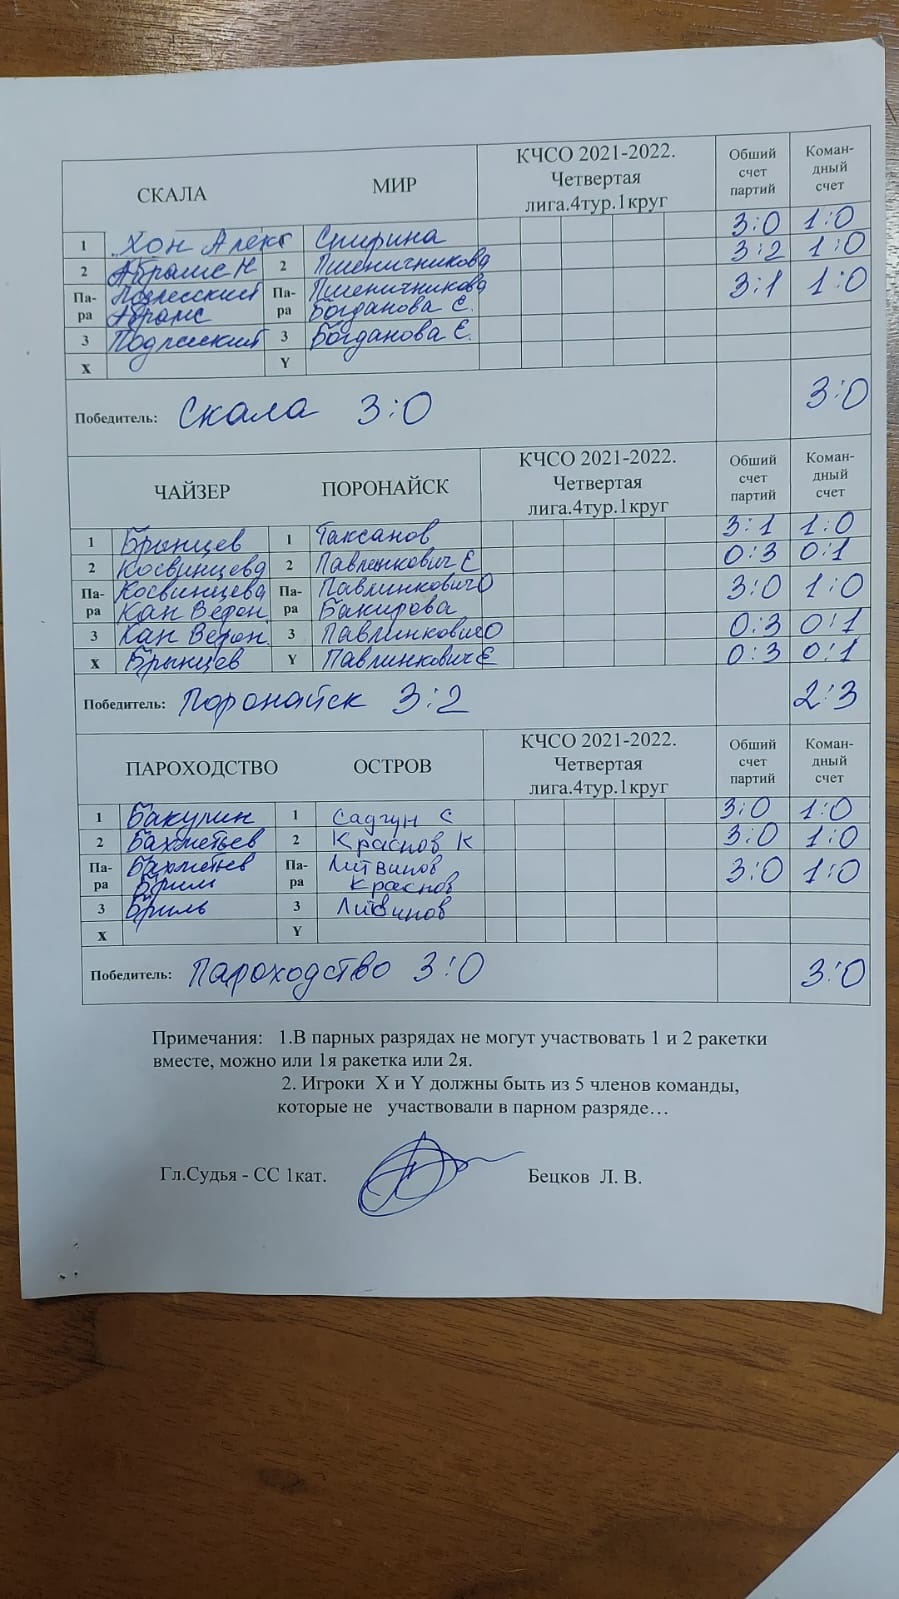 СКАЛА МИР КЧСО 2021-2022. Четвертая лига.4тур.1круг Обший счет партий Коман-дный счет
1 Хон Алекс Спирина 3:0 1:0
2 Абрамс Н 2 Пшеничникова 3:2 1:0
Па-ра Подлесский Абрамс Па-ра Пшеничникова Богданова Е. 3:1 1:0
3 3 Богданова Е.
X Y
Победитель: Скала 3:0 3:0
ЧАЙЗЕР ПОРОНАЙСК КЧСО 2021-2022. Четвертая лига.4тур.1круг Обший счет партий Коман-дный счет
1 Брынцев 1 Таксанов 3:1 1:0
2 Косвинцева 2 Павленкович Е 0:3 0:1
Па-ра Косвинцева Кан Верон. Па-ра Павлинкович О Бакирова 3:0 1:0
3 Кан Верон. 3 Павлинкович О 0:3 0:1
X Брынцев Y Павлинкович Е 0:3 0:1
Победитель: Поронайск 3:2 2:3
ПАРОХОДСТВО ОСТРОВ КЧСО 2021-2022. Четвертая лига.4тур.1круг Обший счет партий Коман-дный счет
1 Бакулин 1 Садгун С 3:0 1:0
2 Бахметьев 2 Краснов К 3:0 1:0
Па-ра Бахметьев Бриль Па-ра Литвинов Краснов 3:0 1:0
3 Бриль 3 Литвинов
X Y
Победитель: Пароходство 3:0 3:0
Примечания: 1.В парных разрядах не могут участвовать 1 и 2 ракетки
вместе, можно или 1я ракетка или 2я.
2. Игроки X и Y должны быть из 5 членов команды,
которые не участвовали в парном разряде…
Гл.Судья - СС 1кат. Бецков Л. В.